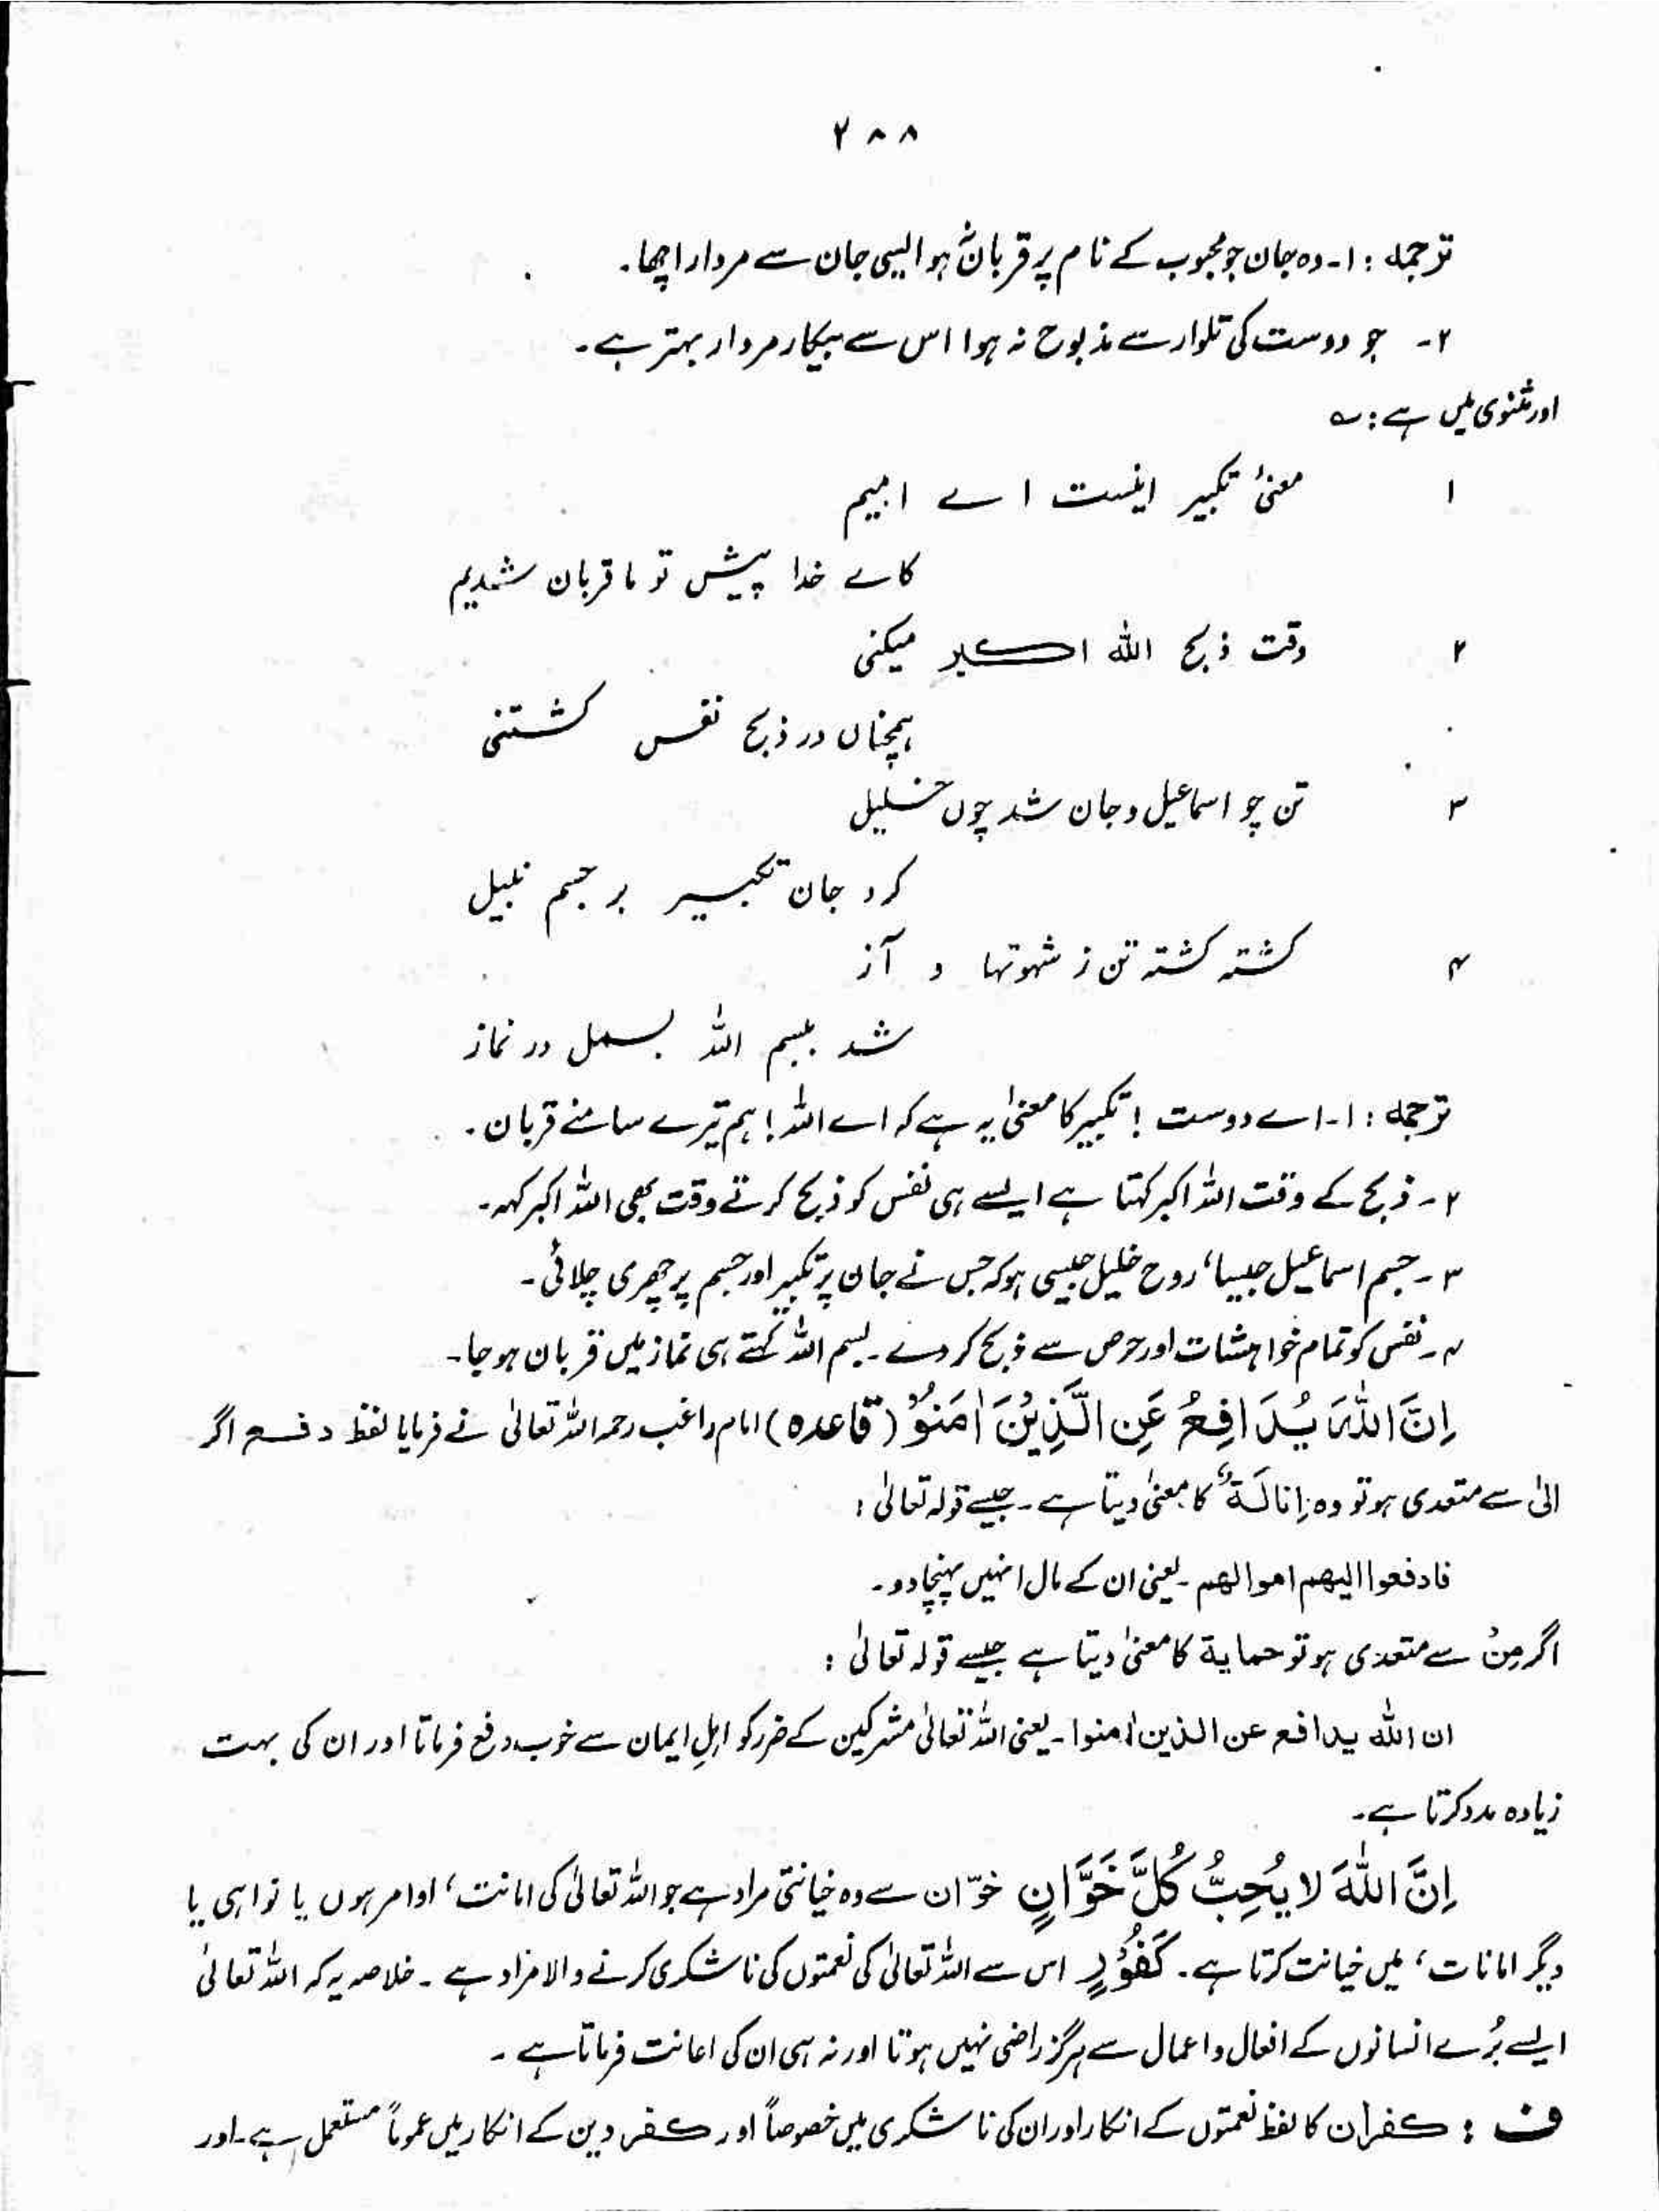 ۲۸۸
ترجمہ : ۱۔ وہ جان جو محبوب کے نام پر قربان نہ ہو ایسی جان سے مردار اچھا۔
۲۔ جو دوست کی تلوار سے مذبوح نہ ہوا اس سے بیکار مردار بہتر ہے۔
اور مثنوی میں ہے : ؎
۱ معنیٔ تکبیر اینست اے امیم
کاے خدا پیش تو ما قربان شدیم
۲ وقت ذبح اللہ اکبر میکنی
ہمچناں در ذبح نفس کشتنی
۳ تن چو اسماعیل و جان شد چوں خلیل
کرد جان تکبیر بر جسم نبیل
۴ کشتہ کشتہ تن ز شہوتہا و آز
شد ببسم اللہ بسمل در نماز
ترجمہ : ۱۔ اے دوست ! تکبیر کا معنیٰ یہ ہے کہ اے اللہ ! ہم تیرے سامنے قربان۔
۲۔ ذبح کے وقت اللہ اکبر کہتا ہے ایسے ہی نفس کو ذبح کرتے وقت بھی اللہ اکبر کہہ۔
۳۔ جسم اسماعیل جیسا، روح خلیل جیسی ہو کہ جس نے جان پر تکبیر اور جسم پر چھری چلائی۔
۴۔ نفس کو تمام خواہشات اور حرص سے ذبح کر دے۔ بسم اللہ کہتے ہی نماز میں قربان ہو جا۔
اِنَّ اللّٰهَ یُدَافِعُ عَنِ الَّذِیْنَ اٰمَنُوْا (قاعدہ) امام راغب رحمہ اللہ تعالیٰ نے فرمایا لفظ دفع اگر
الیٰ سے متعدی ہو تو وہ اِنالَۃٌ کا معنیٰ دیتا ہے۔ جیسے قولہ تعالیٰ :
فادفعوا الیھم اموالھم ۔ یعنی ان کے مال انہیں پہنچا دو۔
اگر مِنْ سے متعدی ہو تو حمایۃ کا معنیٰ دیتا ہے جیسے قولہ تعالیٰ :
ان اللہ یدافع عن الذین اٰمنوا ۔ یعنی اللہ تعالیٰ مشرکین کے ضرر کو اہلِ ایمان سے خوب دفع فرماتا اور ان کی بہت
زیادہ مدد کرتا ہے۔
اِنَّ اللّٰهَ لَا یُحِبُّ کُلَّ خَوَّانٍ خوّان سے وہ خیانتی مراد ہے جو اللہ تعالیٰ کی امانت، اوامر ہوں یا نواہی یا
دیگر امانات، میں خیانت کرتا ہے۔ کَفُوْرٍ اس سے اللہ تعالیٰ کی نعمتوں کی ناشکری کرنے والا مراد ہے ۔ خلاصہ یہ کہ اللہ تعالیٰ
ایسے بُرے انسانوں کے افعال و اعمال سے ہرگز راضی نہیں ہوتا اور نہ ہی ان کی اعانت فرماتا ہے ۔
ف : کفران کا لفظ نعمتوں کے انکار اور ان کی ناشکری میں خصوصاً اور کفر دین کے انکار میں عموماً مستعمل ہے۔ اور